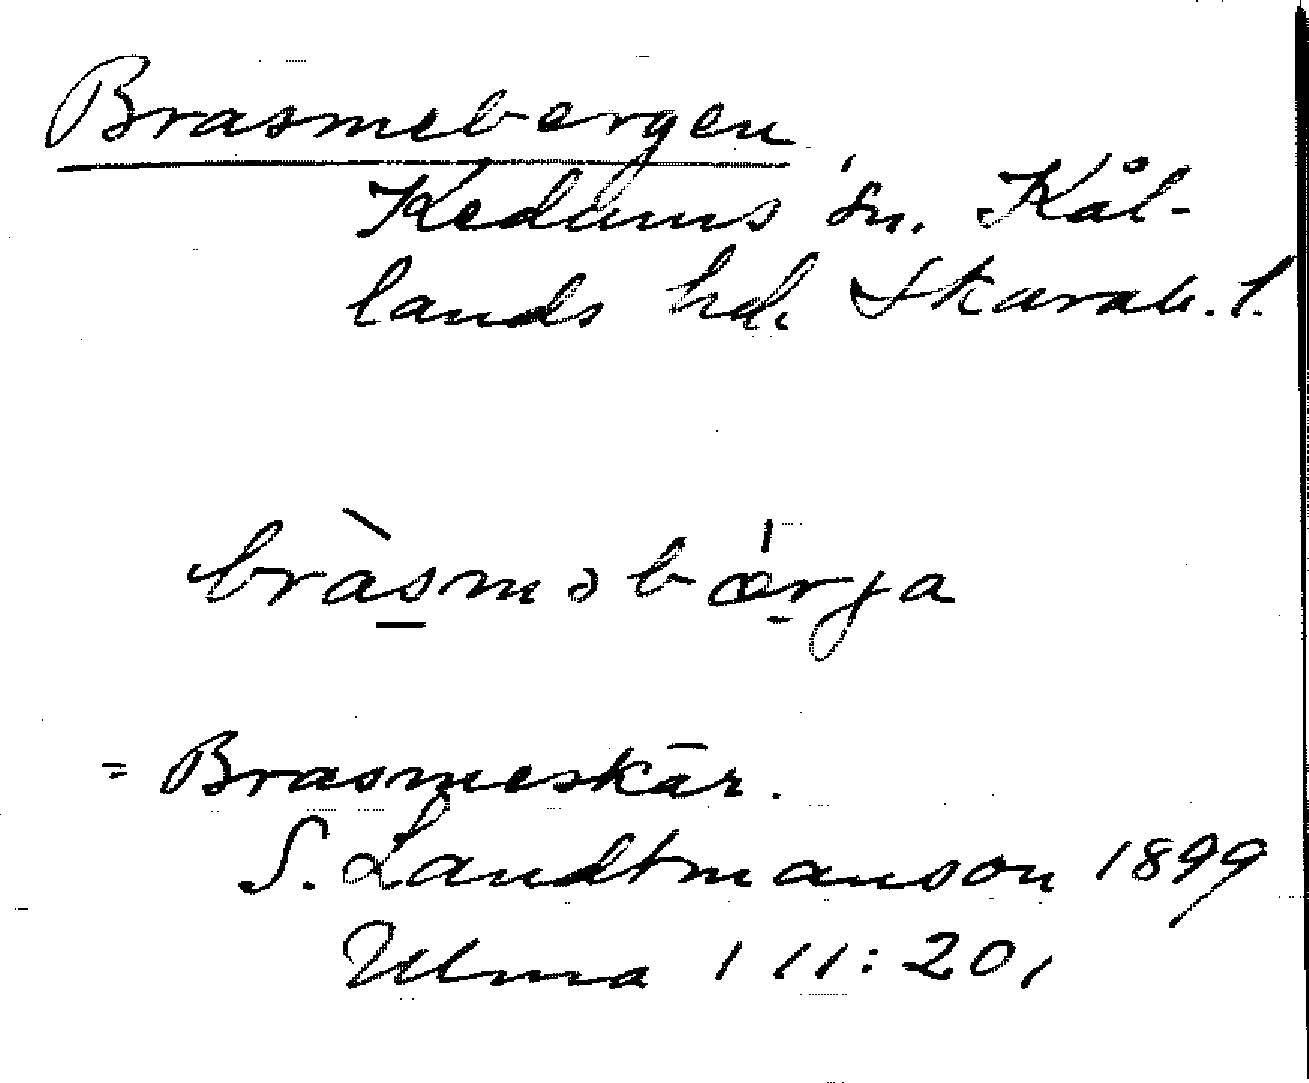 Brasmebergen
Kedums sn. Kål-
lands hd. Skarab. l.
bràsməbærja
= Brasmeskär.
S. Landtmanson 1899
Ulma 111:20,